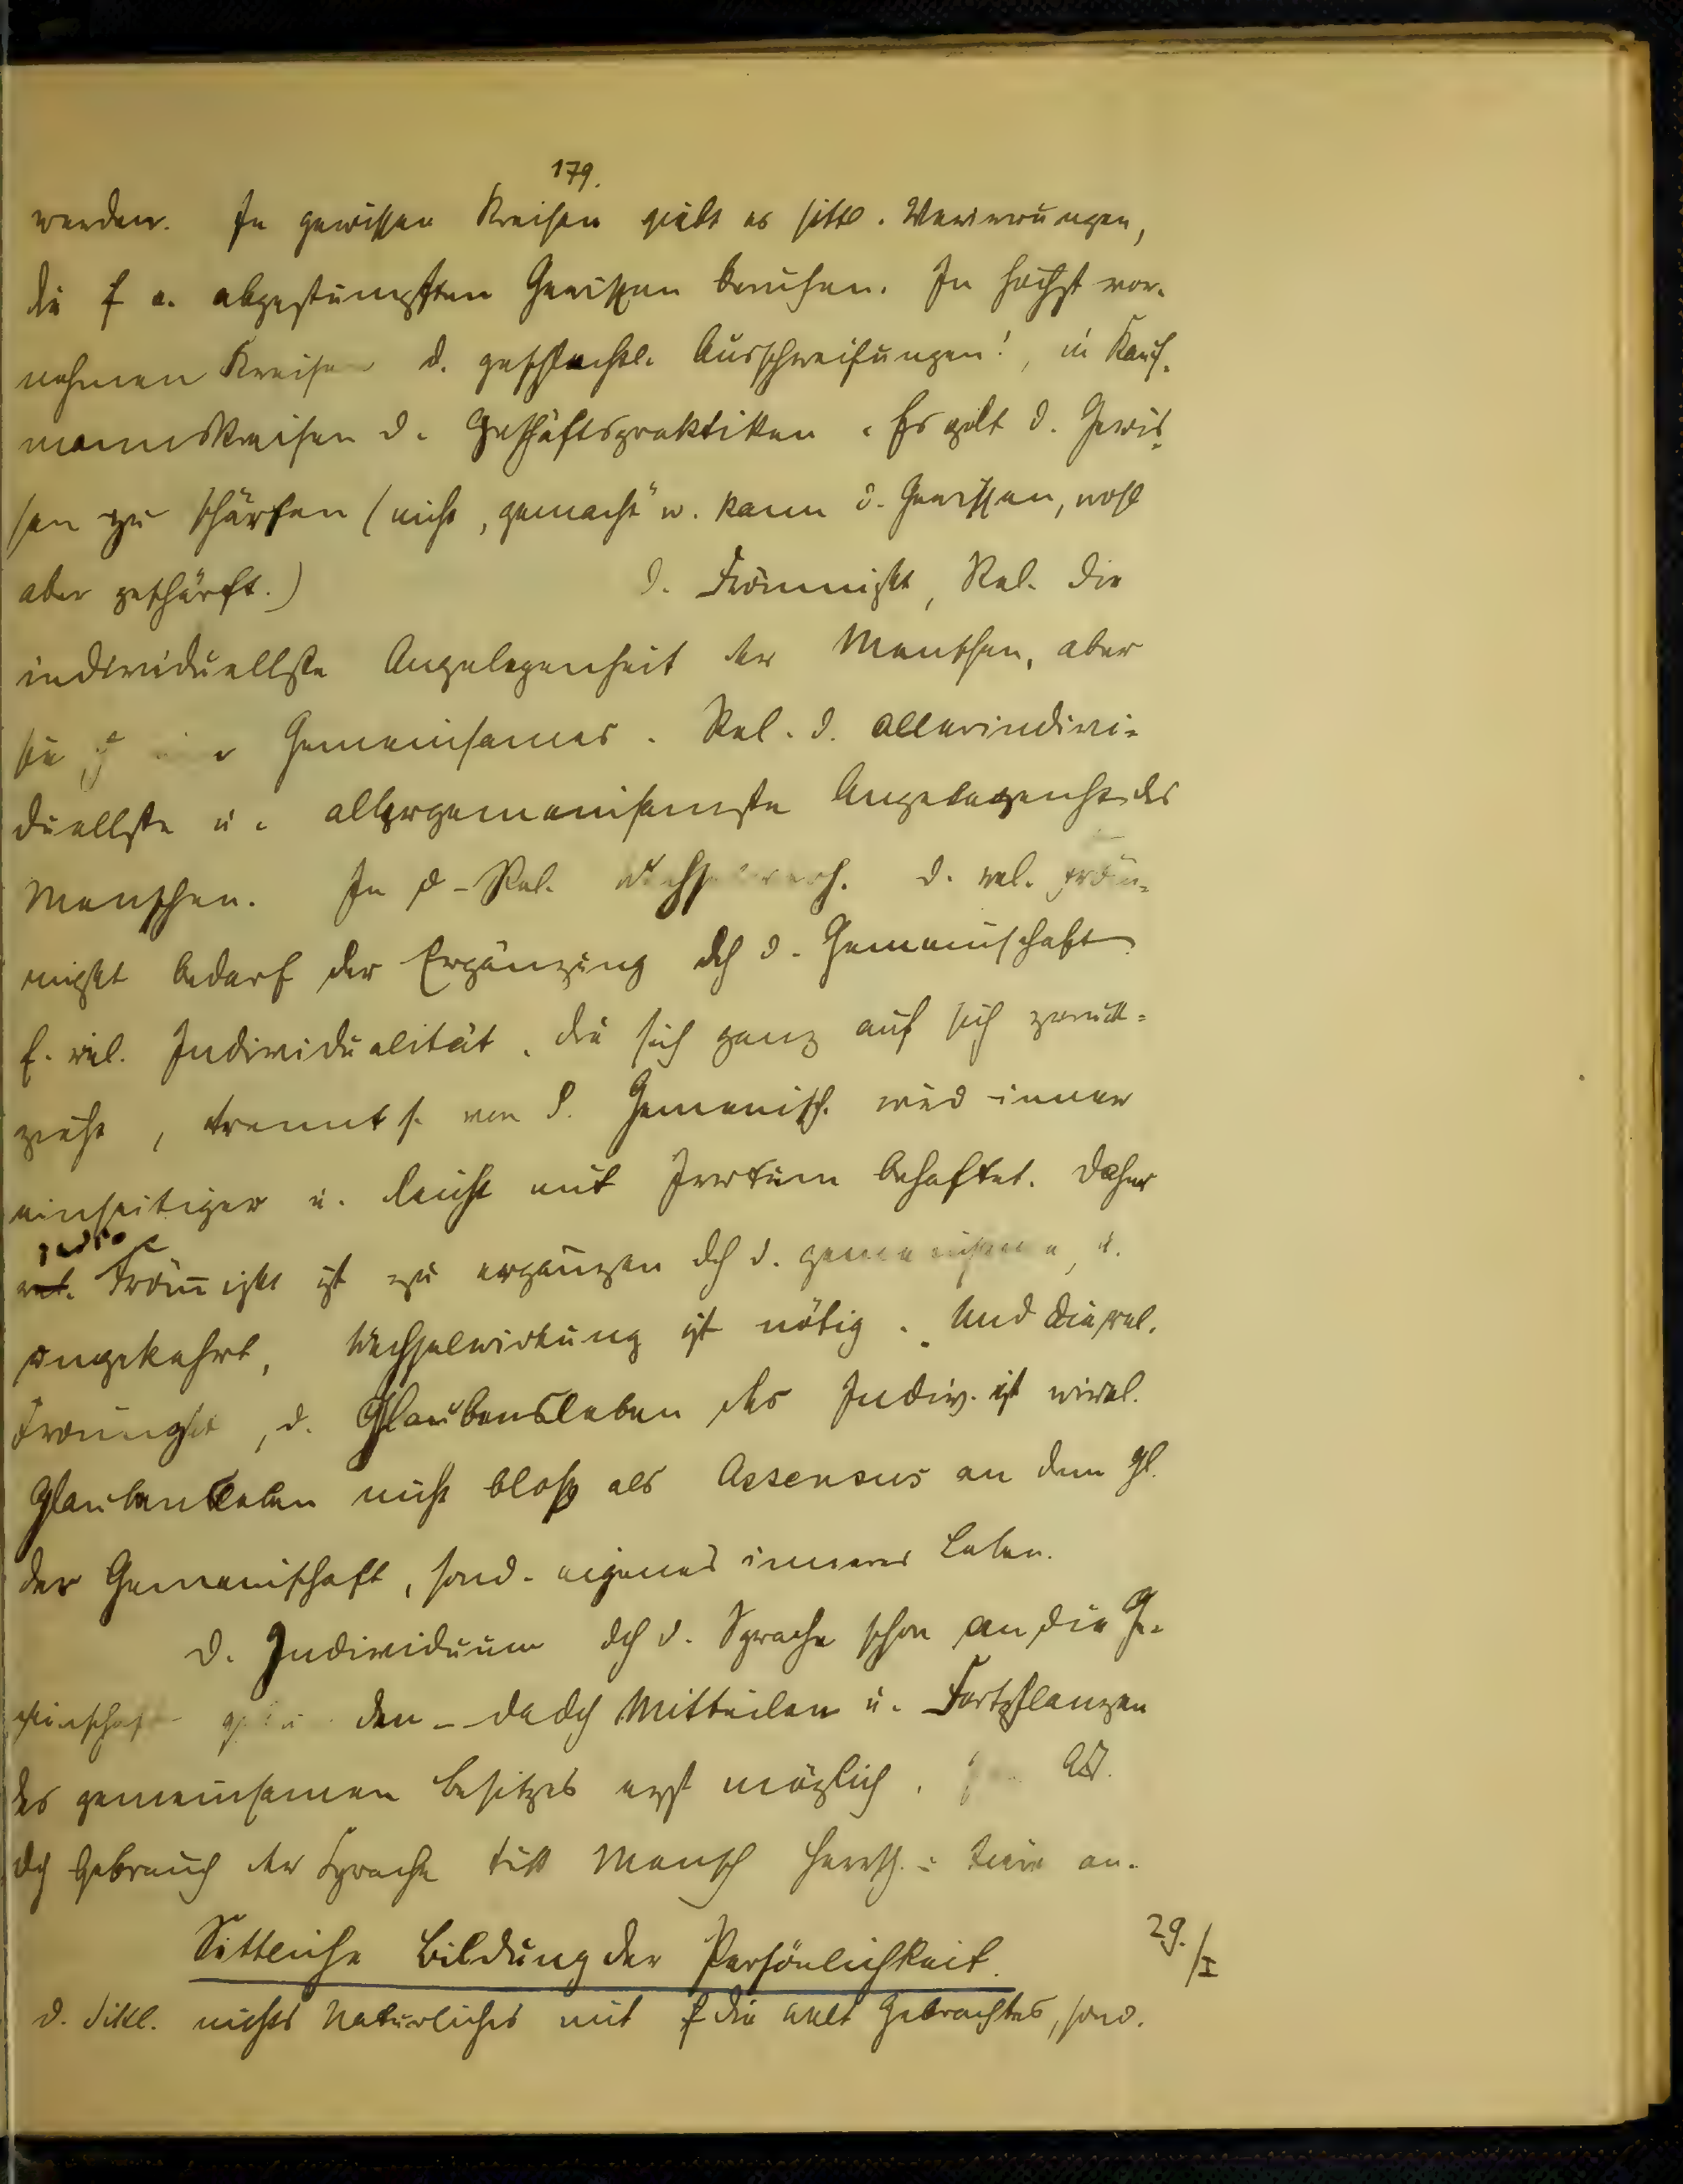 179.
werden. In gewissen Kreisen giebt es sittl. Verirrungen,
die f e. abgestumpften Gewissen beruhen. In höchst vor-
nehmen Kreisen d. geschlechtl. Ausschweifungen!, in Kauf-
mannskreisen d. Geschäftspraktiken. Es gilt d. Gewis-
sen zu schärfen (nicht „gemacht" w. kann d. Gewissen, wohl
aber geschärft.) D. Frömmigkt, Rel. die
individuellste Angelegenheit der Menschen, aber
sie Gemeinsames. Rel. d. allerindivi-
duellste u. allergemeinsamste Angelegenht des
Menschen. In d. Rel. d. rel. Fröm-
migkt bedarf der Ergänzung dch d. Gemeinschaft
E. rel. Individualität, die sich ganz auf sich zurück-
zieht, trennt s. von d. Gemeinsch. wird immer
einseitiger u. leicht mit Irrtum behaftet. Daher
Frömigkt ist zu ergänzen dch d. gemeinsame, u.
umgekehrt, Wechselwirkung ist nötig. Und die rel.
Frömmigkt, d. Glaubensleben des Indiv. ist wirkl.
Glaubensleben nicht bloß als Assensus an dem Gl.
der Gemeinschaft, sond. eigenes inneres Leben.
D. Individuum dch d. Sprache schon an die Ge-
meinschaft gebunden - dadch Mitteilen u. Fortpflanzen
des gemeinsamen Besitzes erst möglich. AT.
dch Gebrauch der Sprache tritt Mensch Herrsch. Tiere an.
Sittliche Bildung der Persönlichkeit.
29./I
D. Sittl. nichts Natürliches mit f die Welt Gebrachtes, sond.